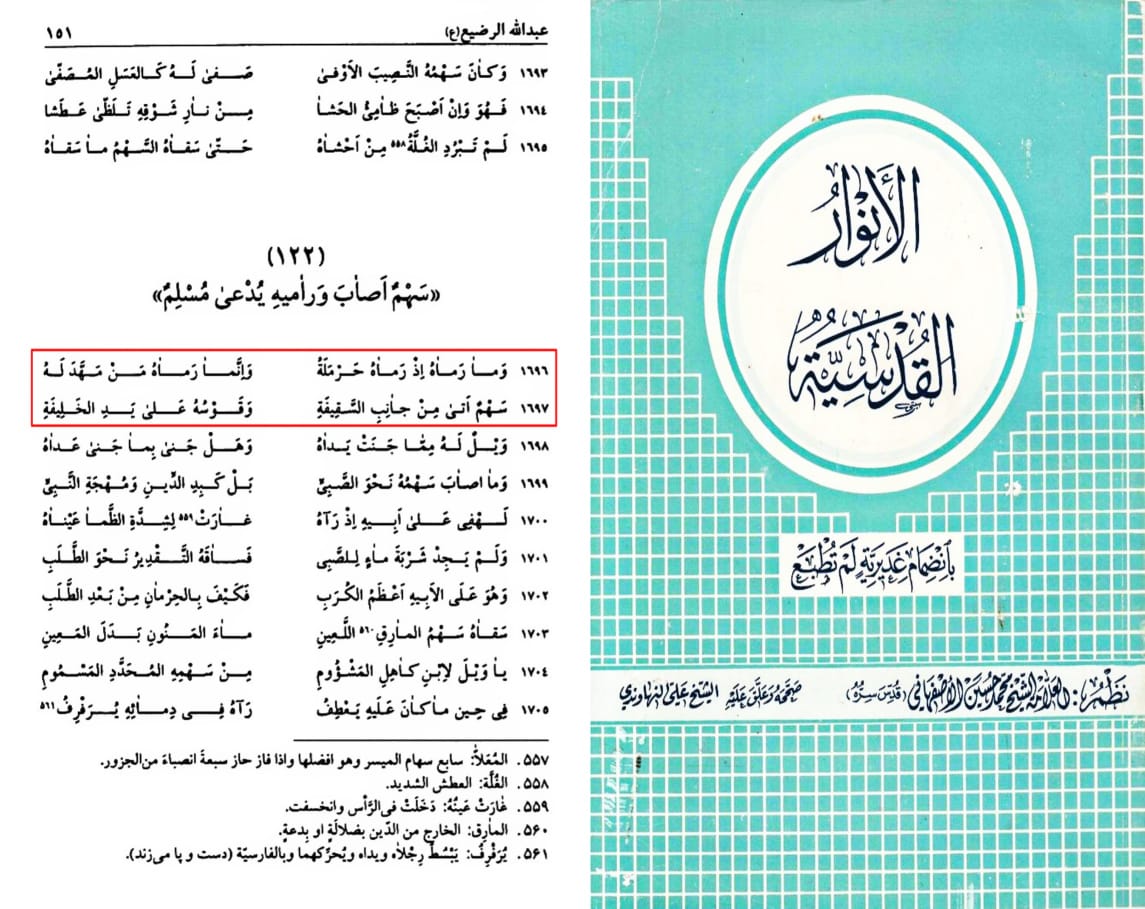 عبدالله الرضيع(ع) ١٥١
١٦٩٣ وَكـٰانَ سَهْمُهُ النَّصِيبَ الاَوْفىٰ صَـفىٰ لَـهُ كَـالعَسَلِ المُـصَفّىٰ
١٦٩٤ فَـهُوَ وَاِنْ اَصْبَحَ ظـٰامِئُ الحَشـٰا مِـنْ نـٰارِ شَـوْقِهِ تَـلَظّىٰ عَـطَشا
١٦٩٥ لَـمْ تَـبْرُدِ الغُلَّةُ٥٥٨ مِـنْ اَحْشـٰاهُ حَـتّىٰ سَقـٰاهُ السَّـهْمُ مـٰا سَقـٰاهُ
(١٢٢)
«سَهْمٌ اَصـٰابَ وَرٰاميهِ يُدْعىٰ مُسْلِمٌ»
١٦٩٦ وَمـٰا رَمـٰاهُ اِذْ رَمـٰاهُ حَـرْمَلَةُ وَاِنَّمـٰا رَمـٰاهُ مَـنْ مَـهَّدَ لَـهُ
١٦٩٧ سَـهْمٌ اَتىٰ مِـنْ جـٰانِبِ السَّقِيفَةِ وَقَـوْسُهُ عَـلىٰ يَـدِ الخَـلِيفَةِ
١٦٩٨ وَيْـلٌ لَـهُ مِمّـٰا جَـنَتْ يَـداهُ وَهَـلْ جَـنىٰ بِمـٰا جَـنىٰ عَـداهُ
١٦٩٩ وَمـٰا اصـٰابَ سَـهْمُهُ نَـحْوَ الصَّبِيِّ بَـلْ كَـبِدِ الدّيـنِ وَمُـهْجَةِ النَّـبِيِّ
١٧٠٠ لَـهْفِى عَـلىٰ اَبِـيهِ اِذْ رَآهُ غـٰارَتْ٥٥٩ لِشِدَّةِ الظَّمـٰا عَيْنـٰاهُ
١٧٠١ وَلَـمْ يَـجِدْ شَـرْبَةَ مـٰاءٍ لِلصَّبِى فَـسـٰاقَهُ التَّـقْدِيرُ نَـحْوَ الطَّـلَبِ
١٧٠٢ وَهْوَ عَـلَى الاَبِـيهِ اَعْـظَمُ الكُـرَبِ فَكَـيْفَ بِـالحِرْمـٰانِ مِـنْ بَـعْدِ الطَّلَبِ
١٧٠٣ سَقـٰاهُ سَـهْمُ المـٰارِقِ٥٦٠ اللَّعِينِ مـٰاءَ المَـنُونِ بَـدَلَ المَـعِينِ
١٧٠٤ يـٰا وَيْـلَ لِاِبْنِ كـٰاهِلِ المَشْـؤُومِ مِـنْ سَـهْمِهِ المُـحَدَّدِ المَسْـمُومِ
١٧٠٥ فِى حِـينِ مـٰاكـٰانَ عَـلَيْهِ يَـعْطِفُ رَآهُ فِـى دِمـٰائِهِ يُـرَفْرِفُ٥٦١
٥٥٧. المُعَلاّ: سابع سهام الميسر وهو افضلها واذا فاز حاز سبعةَ انصباءَ من‌الجزور.
٥٥٨. الغُلَّة: العطش الشديد.
٥٥٩. غـٰارَتْ عَينُهُ: دَخَلَتْ فى‌الرَّأس وانخسفت.
٥٦٠. المـٰارِق: الخارج من الدّين بضلالةٍ او بِدعةٍ.
٥٦١. يُرَفْرِفُ: يَبْسُطُ رِجْلاٰه ويداه ويُحرِّكهما وبالفارسيّة (دست و پا مى‌زند).
الأَنْوٰارُ
القُدْسِيَّةُ
بِانْضِمٰامِ غَدِيرِيَّةٍ لَمْ تُطْبَعْ
نَظْمُ: العَلّامَةِ الشَّيْخِ مُحَمَّد حُسَيْن الأصْفَهانِي (قُدِّسَ سِرُّهُ) صَحَّحَهُ وَعَلَّقَ عَلَيْهِ الشَّيْخ عَلِى النَّهاوَندِي